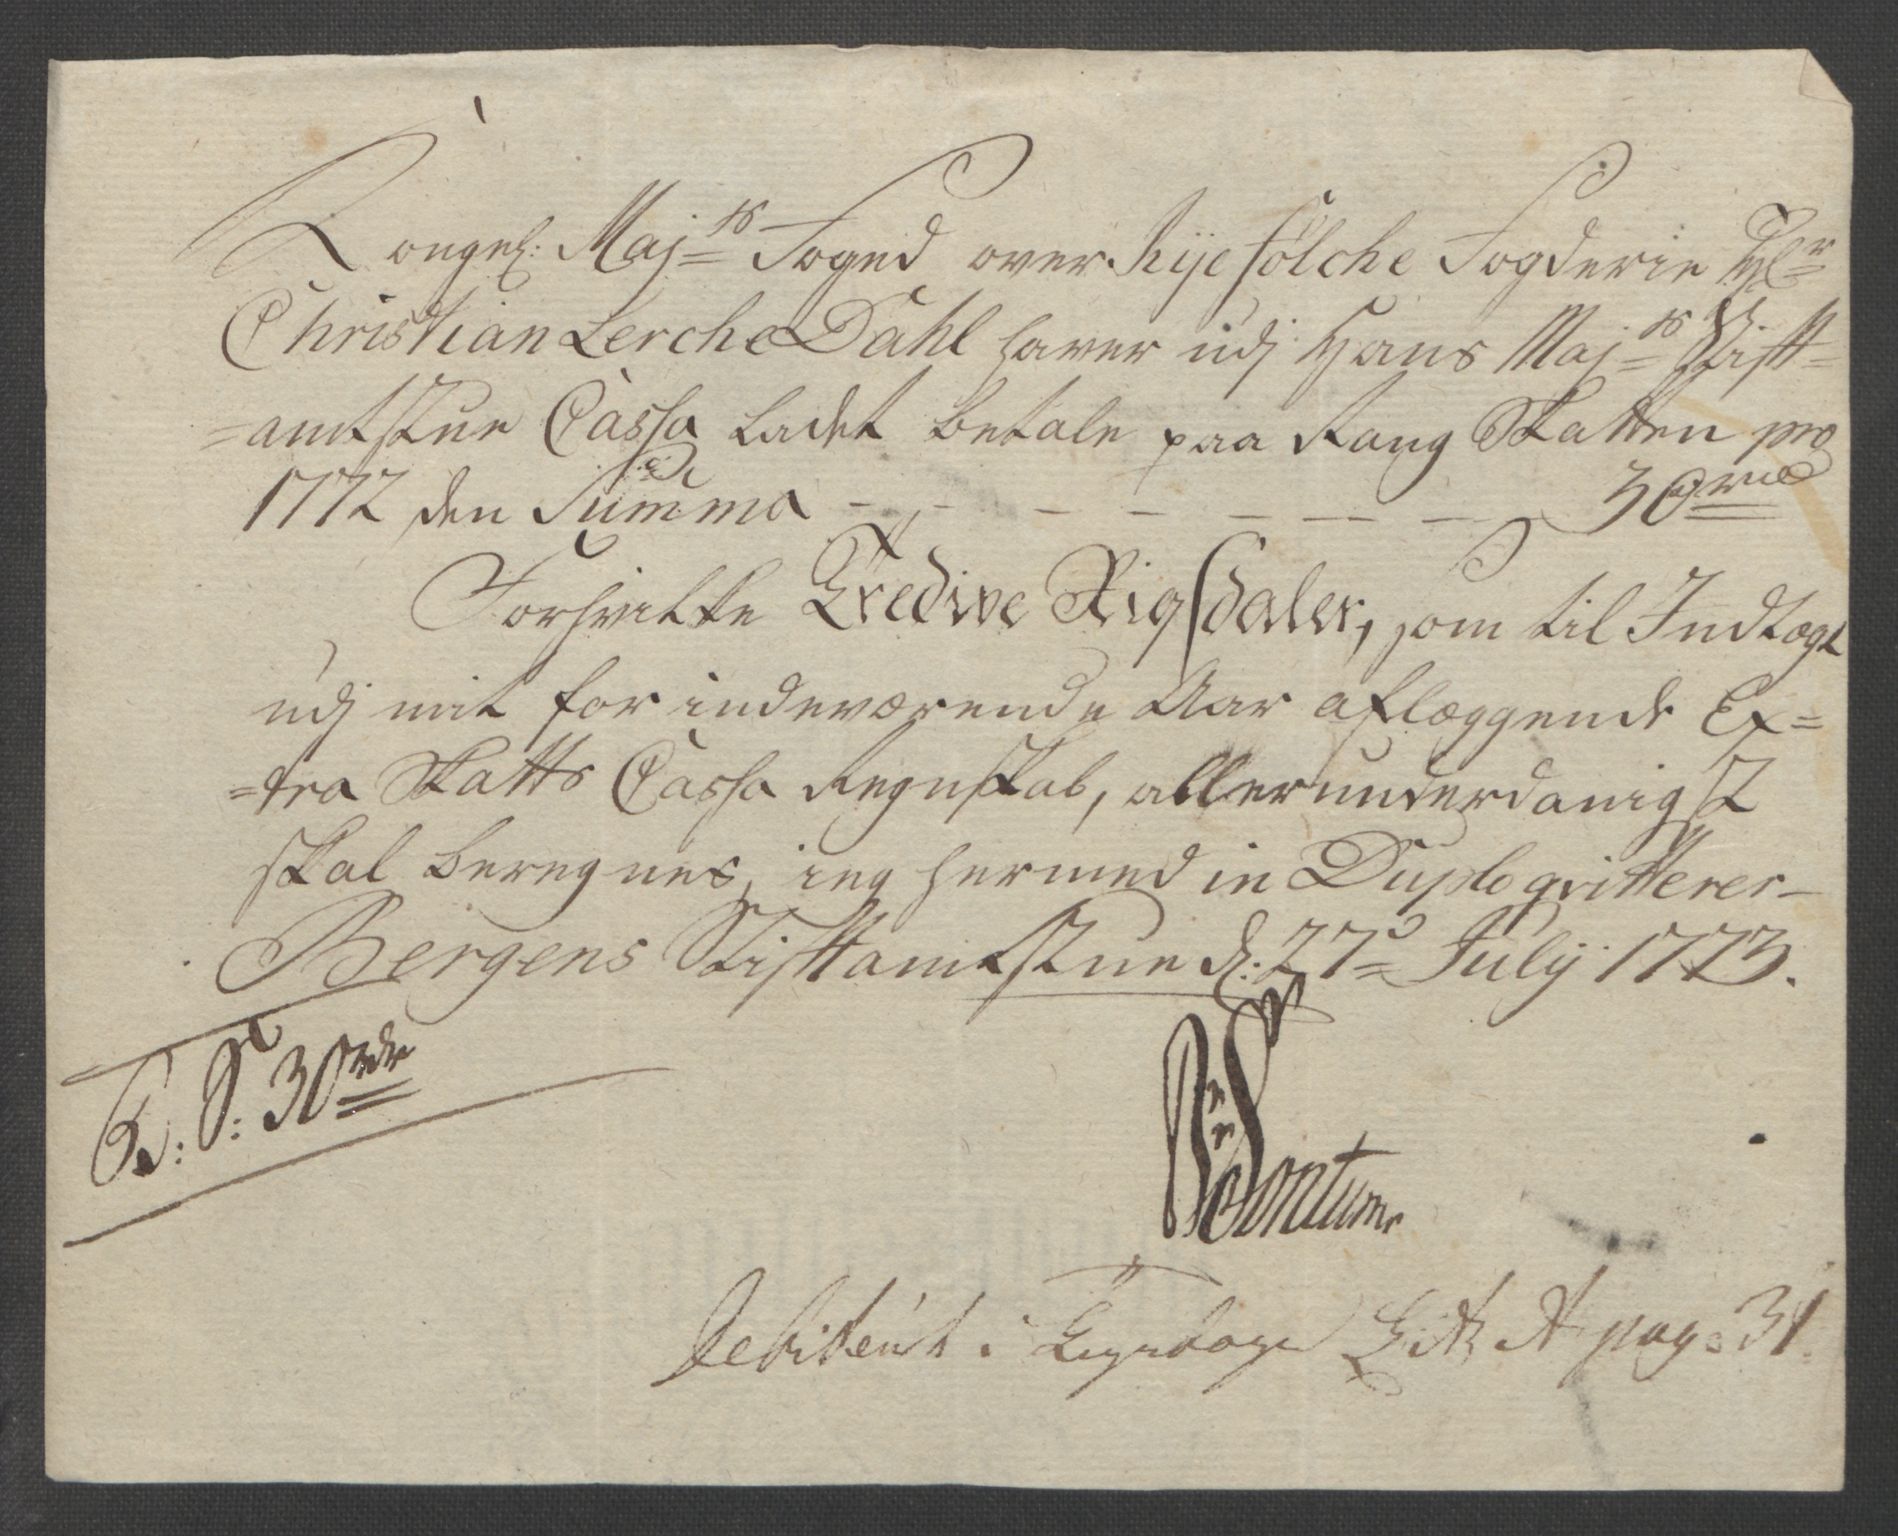 Kongel: Maj:ts Foged over Ryefölche Fogderie Hr
Christian Lerche Dahl haver udj Hans Maj:ts Stift=
=amtstue Cassa ladet betale paa Rang Skatten pro
1772 den Summa — — — — — — — 30 rd
Forskrefne Tredive Rigsdaler, som til Indtægt
udj mit for indeværende Aar aflæggende Ex=
=tra Skatts Cassa Regnskab, allerunderdanigst
skal beregnes, ieg hermed in Duplo qvitterer
Bergens Stiftamtstue d: 27de Julÿ 1773.
S: 30 rdr
Sontum
Debitert i Litr A pag: 31.